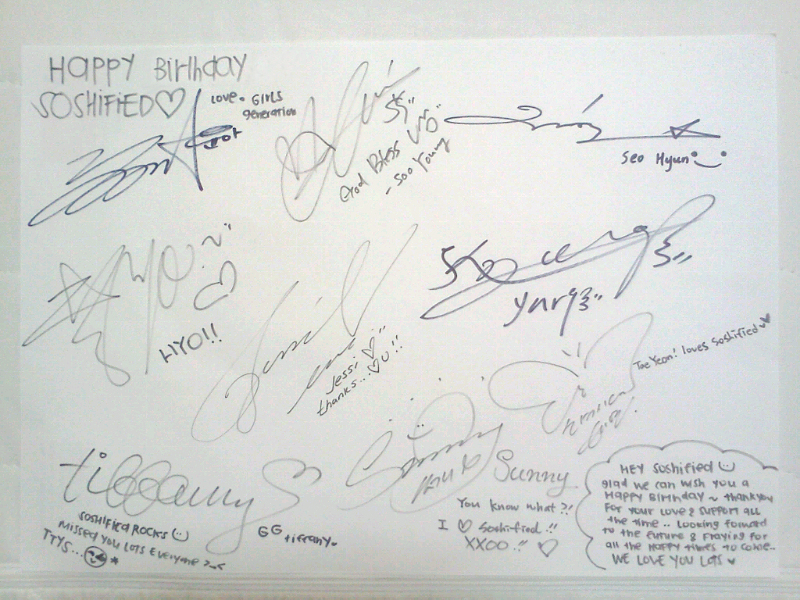 HAPPY BiRthDAY
SOSHiFiED♡
LOVE. GiRLS
generation
God Bless U
- Soo Young
Seo Hyun
HYO!!
Jessi ♡
thanks...♡U!!
ynrg
Tae Yeon! loves Soshified♥
tiffany
Soshified ROCKS
missed you lots everyone >_<
TTYS...
GG
tiffany
Sunny
Sunny
You know what?!
I ♡ Soshified.!!
XXOO!! ♡
HEY Soshified
glad we can wish you a
HAPPY BiRthDAY ~ thankyou
FOR YOUR LOVE & SUPPORT ALL
the time.. Looking forward
to the FUtURE & PRAYING FOR
all the HAPPY times to come..
WE LOVE YOU LOts ♥